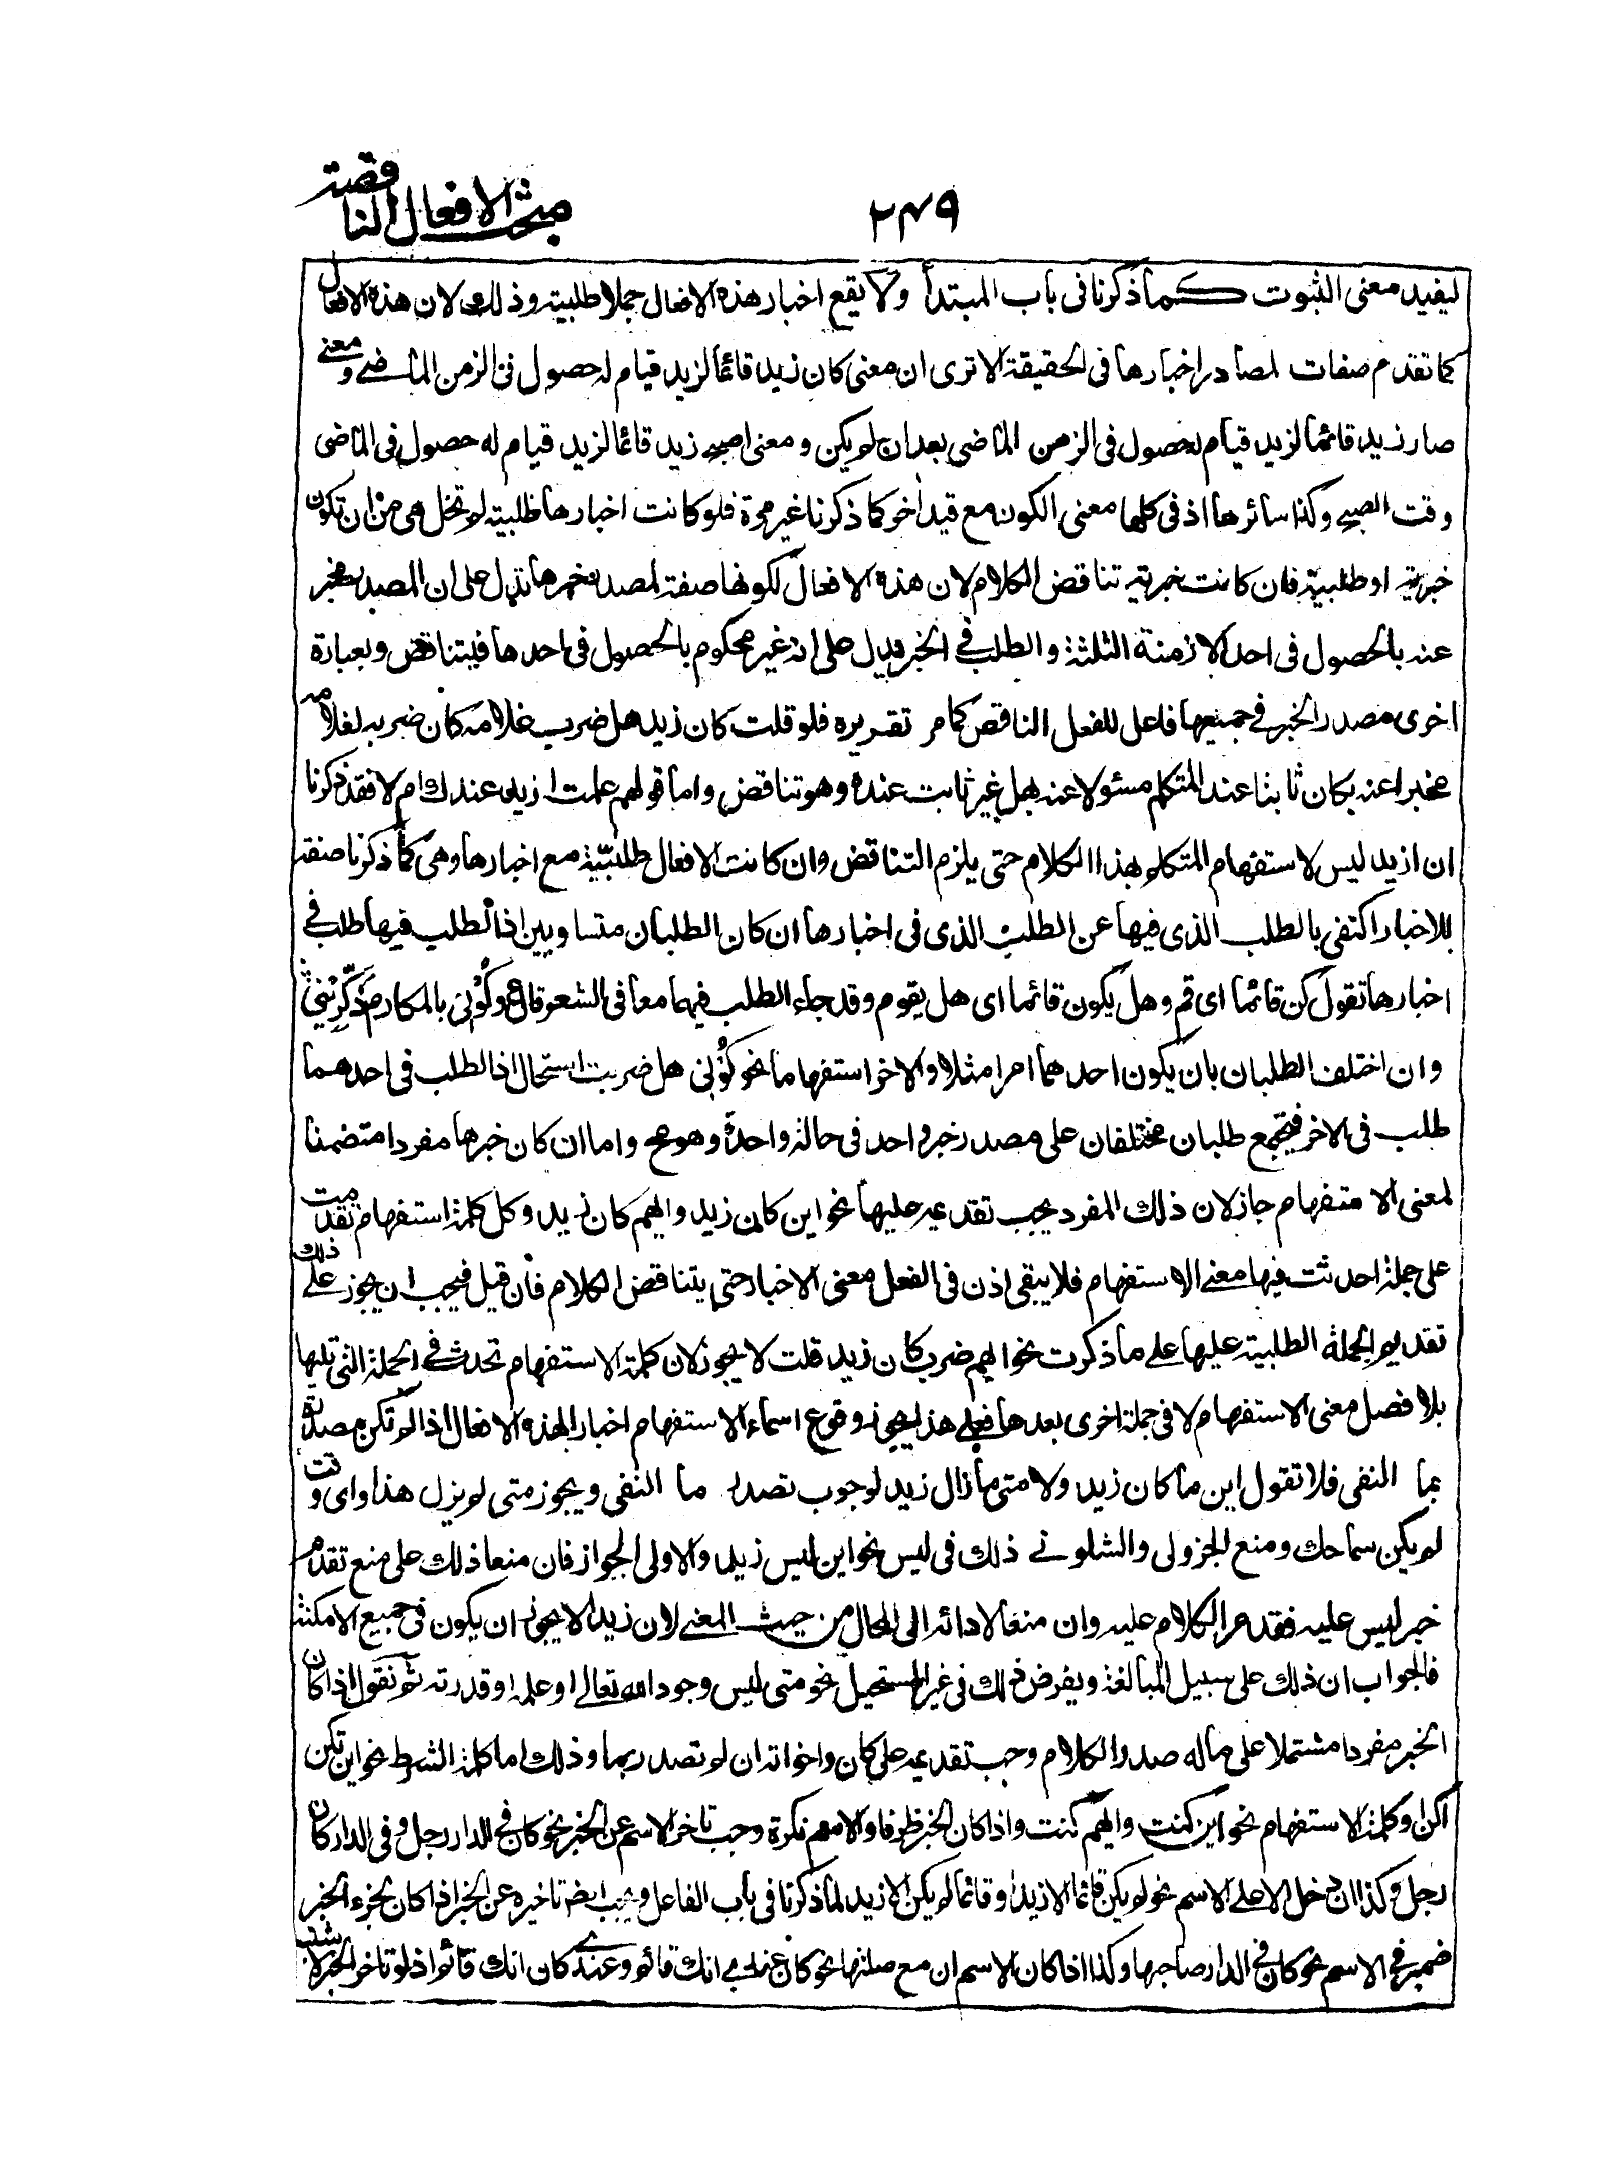 مبحث الافعال الناقصة
٢٧٩
ليفيد معنى الثبوت كما ذكرنا فى باب المبتدأ ولا يقع اخبار هذه الافعال جملا طلبية وذلك لان هذه الافعال
كما تقدم صفات لمصادر اخبارها فى الحقيقة الا ترى ان معنى كان زيد قائما لزيد قيام له حصول فى الزمن الماضى ومعنى
صار زيد قائما لزيد قيام له حصول فى الزمن الماضى بعد ان لم يكن ومعنى اصبح زيد قائما لزيد قيام له حصول فى الماضى
وقت الصبح وكذا سائرها اذ فى كلها معنى الكون مع قيد اخر كما ذكرنا غير مرة فلو كانت اخبارها طلبية لم تخل هى من ان تكون
خبرية او طلبية فان كانت خبرية تناقض الكلام لان هذه الافعال لكونها صفة لمصدر خبرها تدل على ان المصدر مخبر
عنه بالحصول فى احد الازمنة الثلثة والطلب فى الخبر يدل على انه غير محكوم بالحصول فى احدها فيتناقض وبعبارة
اخرى مصدر الخبر فى جميعها فاعل للفعل الناقص كما مر تقريره فلو قلت كان زيد هل ضرب غلامه كان ضربه لغلامه
مخبرا عنه بكان ثابتا عند المتكلم مسئولا عنه بهل غير ثابت عنده وهو تناقض واما قولهم علمت ازيد عندك ام لا فقد ذكرنا
ان ازيد ليس لاستفهام المتكلم بهذا الكلام حتى يلزم التناقض وان كانت الافعال طلبية مع اخبارها وهى كما ذكرنا صفة
للاخبار اكتفى بالطلب الذى فيها عن الطلب الذى فى اخبارها ان كان الطلبان متساويين اذ الطلب فيها طلب فى
اخبارها تقول كن قائما اى قم وهل يكون قائما اى هل يقوم وقد جاء الطلب فيهما معا فى الشعر قال ع وكُوْنى بالمكارم ذَكِّرِيْنى
وان اختلف الطلبان بان يكون احدهما امرا مثلا والاخر استفهاما نحو كُوْنى هل ضربت استحال اذ الطلب فى احدهما
طلب فى الاخر فيجتمع طلبان مختلفان على مصدر خبر واحد فى حالة واحدة وهو مح واما ان كان خبرها مفردا متضمنا
لمعنى الاستفهام جاز لان ذلك المفرد يجب تقديمه عليها نحو اين كان زيد وايهم كان زيد وكل كلمة استفهام تقدمت
على جملة احدثت فيها معنى الاستفهام فلا يبقى اذن فى الفعل معنى الاخبار حتى يتناقض الكلام فان قيل فيجب ان يجوز على ذلك
تقديم الجملة الطلبية عليها على ما ذكرت نحو ايهم ضرب كان زيد قلت لا يجوز لان كلمة الاستفهام تحدث فى الجملة التى تليها
بلا فصل معنى الاستفهام لا فى جملة اخرى بعدها فعلى هذا يجوز وقوع اسماء الاستفهام اخبارا لهذه الافعال اذا لم تكن مصدرة
بما النفى فلا تقول اين ما كان زيد ولا متى ما زال زيد لوجوب تصدر ما النفى ويجوز متى لم يزل هذا واى وقت
لم يكن سماحك ومنع الجزولى والشلوبنى ذلك فى ليس نحو اين ليس زيد والاولى الجواز فان منعا ذلك على منع تقدم
خبر ليس عليه فقد مر الكلام عليه وان منعا لادائه الى المحال من حيث المعنى لان زيدا لا يجوز ان يكون فى جميع الامكنة
فالجواب ان ذلك على سبيل المبالغة ويفرض ذلك فى غير المستحيل نحو متى ليس وجود الله تعالى او علمه او قدرته ثم نقول اذا كان
الخبر مفردا مشتملا على ماله صدر الكلام وجب تقديمه على كان واخواته ان لم تصدر بما وذلك اما كلمة الشرط نحو اين تكن
اكن او كلمة الاستفهام نحو اين كنت وايهم كنت واذا كان الخبر ظرفا والاسم نكرة وجب تاخر الاسم عن الخبر نحو كان فى الدار رجل وفى الدار كان
رجل وكذا ان دخل الا على الاسم نحو لم يكن قائما الا زيد او قائما لم يكن الا زيد لما ذكرنا فى باب الفاعل ويجب ايض تاخيره عن الخبر اذا كان لجزء الخبر
ضمير فى الاسم نحو كان فى الدار صاحبها وكذا اذا كان الاسم ان مع صلتها نحو كان عندى انك قائم وعندى كان انك قائم اذ لو تاخر الخبر لاشتبه